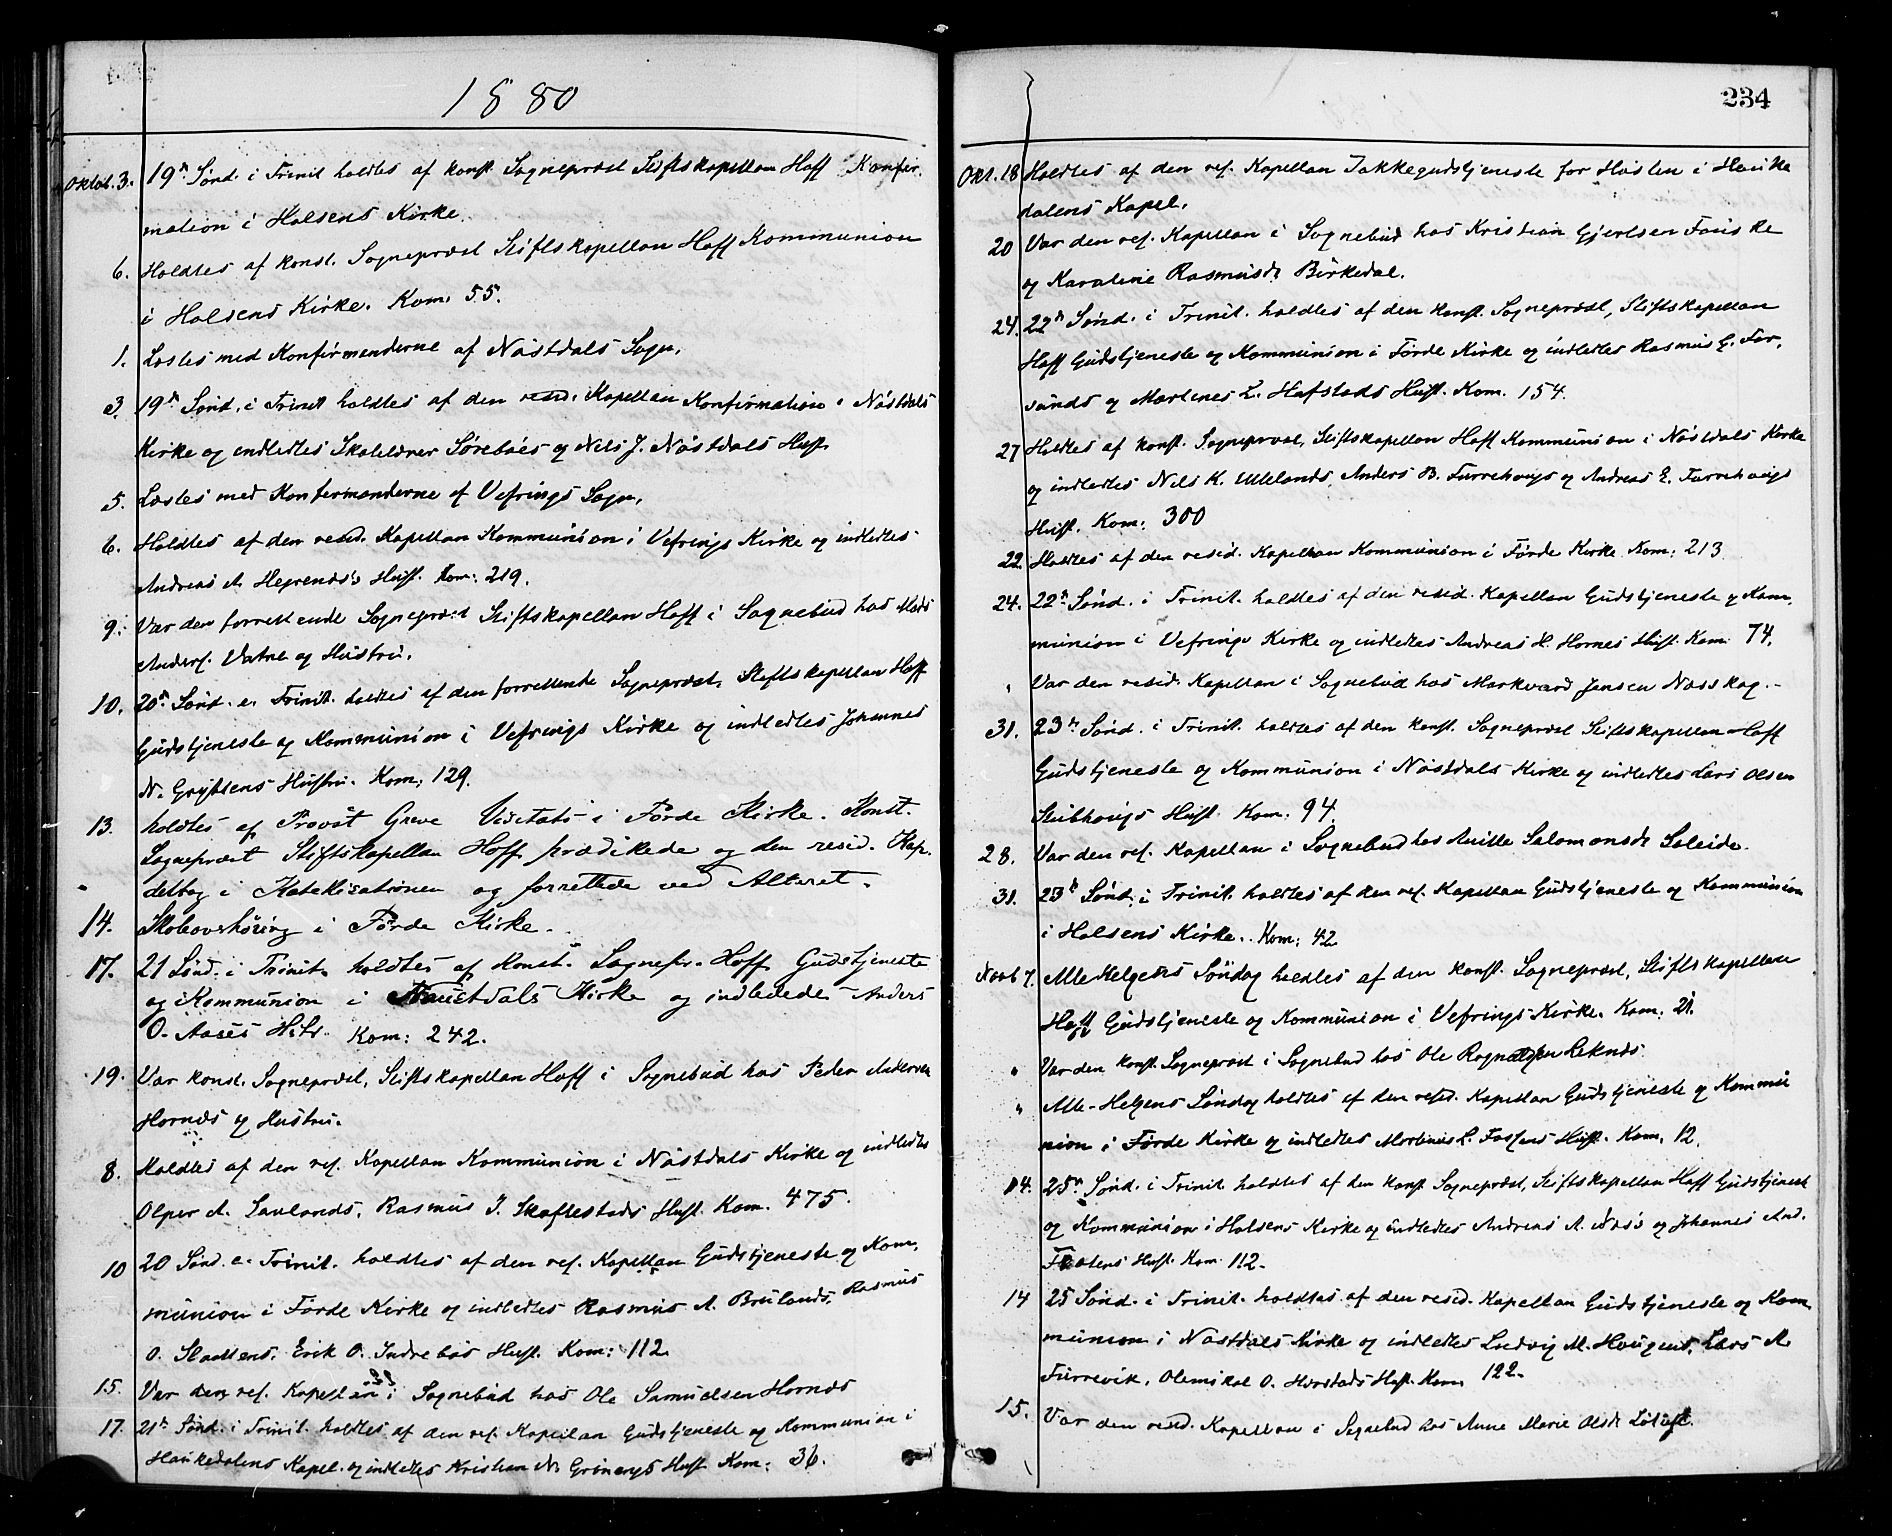 1880
Oktob. 3. 19de Sønd. i Trinit holdtes af konst. Sognepræst Stiftskapellan Hoff Konfir-
mation i Holsens Kirke
6. Holdtes af konst. Sognepræst Stiftskapellan Hoff Kommunion
i Holsens Kirke. Kom. 55.
1. Læstes med Konfirmanderne af Nøstdals Sogn.
3. 19de Sønd. i Trinit holdtes af den resid. Kapellan Konfirmation i Nøstdals
Kirke og indledtes Skolelærer Sørebøes og Nils J. Nøstdals Hust.
5. Læstes med Konfirmanderne af Vefrings Sogn.
6. Holdtes af den resid. Kapellan Kommunion i Vefrings Kirke og indledtes
Andreas A. Hegrenæs's Hust. Kom: 219.
9. Var den forrettende Sognepræst Stiftskapellan Hoff i Sognebud hos Mads
Anders. Vatne og Hustru.
10. 20de Sønd. e. Trinit. holdtes af den forrettende Sognepræst, Stiftskapellan Hoff
Gudstjeneste og Kommunion i Vefrings Kirke og indledtes Johannes
N. Gryttens Hustru. Kom: 129.
13. holdtes af Provst Greve Visitats i Førde Kirke. Konst.
Sognepræst Stiftskapellan Hoff prædikede og den resid. Kap.
deltog i Katekisationen og forrettede ved Alteret.
14. Skoleovshøring i Førde Kirke.
17. 21 Sønd. i Trinit. holdtes af Konst. Sognepr. Hoff Gudstjeneste
og Kommunion i Naustdals Kirke og indledede Anders
O. Aases Hstr. Kom: 242.
19. Var konst. Sognepræst, Stiftskapellan Hoff i Sognebud hos Peder Andersen
Hornæs og Hustru.
8. Holdtes af den res. Kapellan Kommunion i Nøstdals Kirke og indledtes
A. Savlands, Rasmus J. Skaflestads Hust. Kom. 475.
10 20 Sønd. e. Trinit. holdtes af den res. Kapellan Gudstjeneste og Kom-
munion i Førde Kirke og indledtes Rasmus A. Brulands, Rasmus
O. Erik O. Indrebøs Hust. Kom: 112
15. Var den res. Kapellan i Sognebud hos Ole Samuelsen Hornæs
17. 21de Sønd. i Trinit. holdtes af den res. Kapellan Gudstjeneste og Kommunion i
Haukedalens Kapel. og indledtes Kristian N. Hust. Kom: 36.
234
Okt. 18 Holdtes af den res. Kapellan Takkegudstjeneste for Høsten i Hauke
dalens Kapel.
20 Var den res. Kapellan i Sognebud hos Kristian Gjertsen Fauske
og Karoline Rasmusdr Birkedal.
24. 22de Sønd. i Trinit. holdtes af den konst. Sognepræst, Stiftskapellan
Hoff Gudstjeneste og Kommunion i Førde Kirke og indledtes Rasmus G. For-
sunds og Martines L. Hafstads Hust. Kom. 154.
27 Holdtes af konst. Sognepræst, Stiftskapellan Hoff Kommunion i Nøstdals Kirke
og indledtes Nils K. Ullelands, Anders B. Furrehougs og Andreas E. Furrehougs
Hust. Kom: 300
22. Holdtes af den resid. Kapellan Kommunion i Førde Kirke Kom: 213
24. 22de Sønd. i Trinit. holdtes af den resid. Kapellan Gudstjeneste og Kom-
munion i Vefrings Kirke og indledtes Andreas L. Hornes Hust. Kom: 74.
" Var den resid. Kapellan i Sognebud hos Markvard Jensen Næsskog.
31. 23de Sønd. i Trinit. holdtes af den konst. Sognepræst Stiftskapellan Hoff
Gudstjeneste og Kommunion i Nøstdals Kirke og indledtes Lars Olsen
Stubhougs Hust. Kom. 94.
28. Var den res. Kapellan i Sognebud hos Salomonsdr Soleide.
31. 23de Sønd. i Trinit. holdtes af den res. Kapellan Gudstjeneste og Kommunion
i Holsens Kirke. Kom: 42
Novb 7. Alle Helgens Søndag holdtes af den konst. Sognepræst, Stiftskapellan
Hoff Gudstjeneste og Kommunion i Vefrings Kirke. Kom: 21.
" Var den konst. Sognepræst i Sognebud hos Ole Rognaldsen Reknæs.
" Alle-Helgens Søndag holdtes af den resid. Kapellan Gudstjeneste og Kommu
nion i Førde Kirke og indledtes Martinus L. Fossens Hust. Kom. 12.
14. 25de Sønd. i Trinit. holdtes af den konst. Sognepræst, Stiftskapellan Hoff Gudstjenest
og Kommunion i Holsens Kirke og indledtes Andreas A. Næs's og Johannes And.
Hust. Kom. 112.
14 25 Sønd. i Trinit. holdtes af den resid. Kapellan Gudstjeneste og Kom-
munion i Nøstdals Kirke og indledtes Ludvig M. Hougens, Lars A.
Furrevik, Olemikal O. Horstads Hust. Kom. 122.
15. Var den resid. Kapellan i Sognebud hos Anne Marie Olsdr